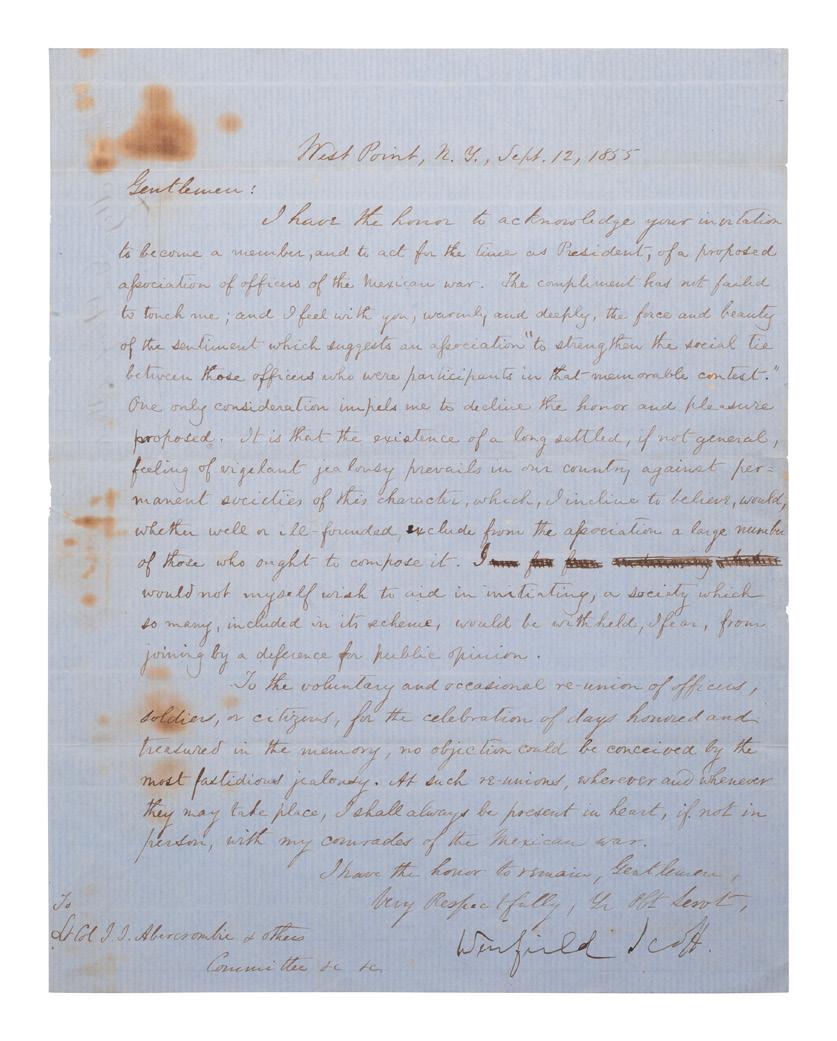 West Point, N. Y., Sept. 12, 1855
Gentlemen:
I have the honor to acknowledge your invitation
to become a member, and to act for the time as President, of a proposed
association of officers of the Mexican war. The compliment has not failed
to touch me; and I feel with you, warmly and deeply, the force and beauty
of the sentiment which suggests an association "to strengthen the social tie
between those officers who were participants in that memorable contest."
One only consideration impels me to decline the honor and pleasure
proposed. It is that the existence of a long settled, if not general,
feeling of vigilant jealousy prevails in our country against per=
manent societies of this character, which, I incline to believe, would,
whether well or ill-founded, exclude from the association a large number
of those who ought to compose it. I
would not myself wish to aid in initiating, a society which
so many, included in its scheme, would be withheld, I fear, from
joining by a deference for public opinion.
To the voluntary and occasional re-union of officers,
soldiers, or citizens, for the celebration of days honored and
treasured in the memory, no objection could be conceived by the
most fastidious jealousy. At such re-unions, wherever and whenever
they may take place, I shall always be present in heart, if not in
person, with my comrades of the Mexican war.
I have the honor to remain, Gentlemen,
Very Respectfully, Yr Obt Servt,
Winfield Scott.
To
Lt Col J. J. Abercrombie & others
Committee &c &c